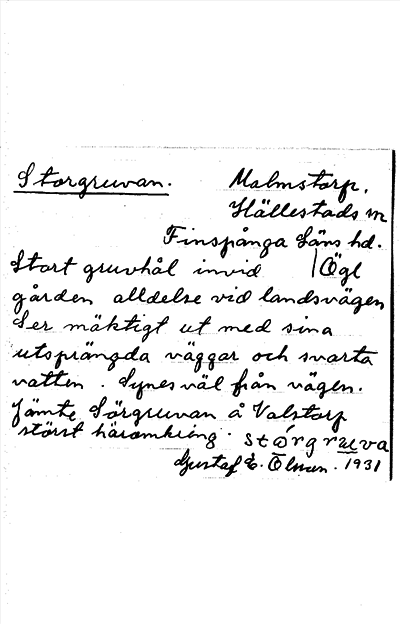 Storgruvan. Malmstorp,
Hällestads sn
Finspånga läns hd.
Stort gruvhål invid Ögl
gården alldeles vid landsvägen
Ser mäktigt ut med sina
utsprängda väggar och svarta
vatten. Synes väl från vägen.
Jämte Sörgruvan å Valstorp
störst häromkring. stórgruva
Gustaf E. Ölman. 1931